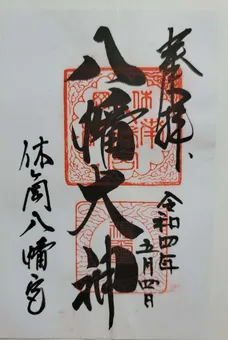 奉拝
令和四年
五月四日
八幡大神
休岡八幡宮